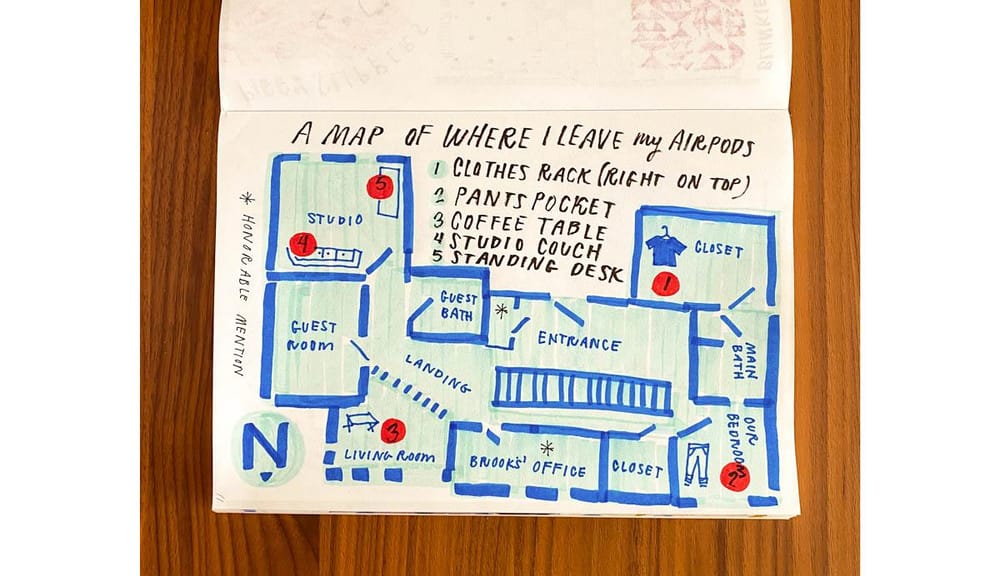 A MAP OF WHERE I LEAVE my AIRPODS
1 CLOTHES RACK (RIGHT ON TOP)
2 PANTS POCKET
3 COFFEE TABLE
4 STUDIO COUCH
5 STANDING DESK
* HONORABLE MENTION
5
STUDIO
4
CLOSET
1
GUEST
BATH
*
ENTRANCE
GUEST
ROOM
LANDING
MAIN
BATH
3
LIVING ROOM
*
BROOKS' OFFICE
CLOSET
OUR
BEDROOM
2
N